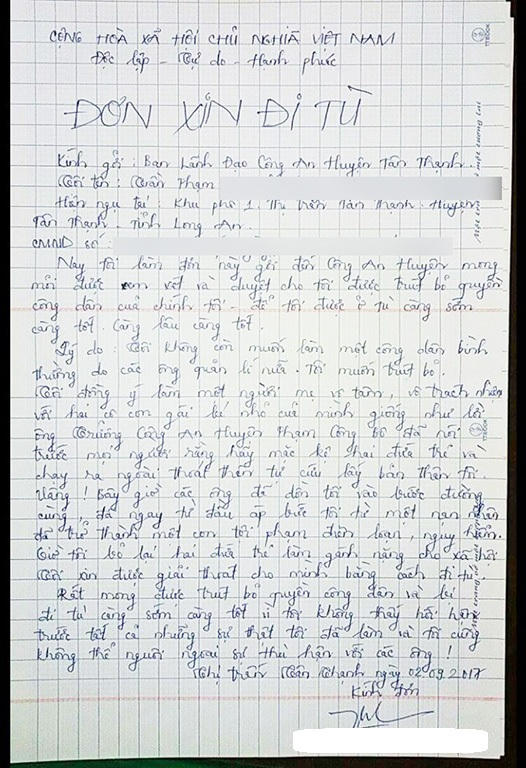 CỘNG HOÀ XÃ HỘI CHỦ NGHĨA VIỆT NAM
Độc lập - Tự do - Hạnh phúc
ĐƠN XIN ĐI TÙ
Kính gởi : Ban Lãnh Đạo Công An Huyện Tân Thạnh.
Tôi tên : Trần Phạm
Hiện ngụ tại : Khu phố 1. Thị trấn Tân Thạnh. Huyện
Tân Thạnh. Tỉnh Long An.
CMND số :
Nay tôi làm đơn này gởi đến Công An Huyện mong
mỏi được xem xét và duyệt cho tôi được trút bỏ quyền
công dân của chính tôi - để tôi được ở tù càng sớm
càng tốt. Càng lâu càng tốt.
Lý do : Tôi không còn muốn làm một công dân bình
thường do các ông quản lí nữa. Tôi muốn trút bỏ.
Tôi đồng ý làm một người mẹ vô tâm, vô trách nhiệm
với hai cô con gái bé nhỏ của mình giống như lời
ông Trưởng Công An Huyện Phạm Công Bô đã nói
trước mọi người rằng hãy mặc kệ hai đứa trẻ và
chạy ra ngoài thoát thân tự cứu lấy bản thân tôi.
Vâng ! Bây giờ các ông đã dồn tôi vào bước đường
cùng, đã ngay từ đầu áp bức tôi từ một nạn nhân
đã trở thành một con tội phạm điên loạn, nguy hiểm.
Giờ tôi bỏ lại hai đứa trẻ làm gánh nặng cho xã hội
Tôi xin được giải thoát cho mình bằng cách đi tù.
Rất mong được trút bỏ quyền công dân và
đi tù càng sớm càng tốt vì tôi không thấy hối hận
trước tất cả những sự thật tôi đã làm và tôi cũng
không thể nguôi ngoai sự thù hận với các ông !
Thị trấn Tân Thạnh ngày 02.09.2017
Kính đơn
TTBOOK